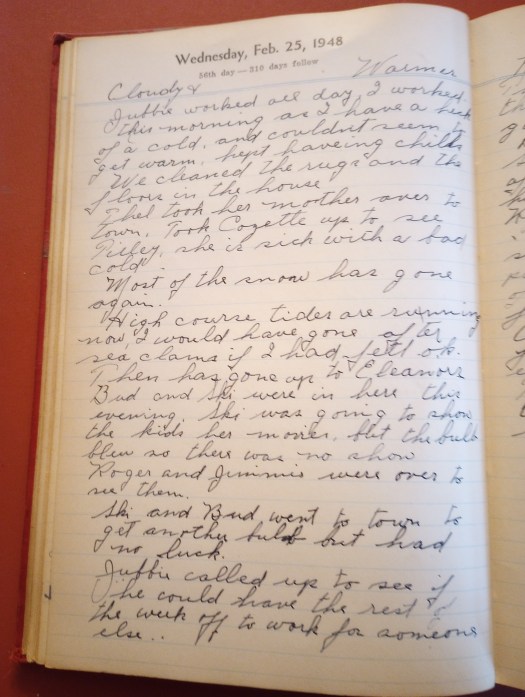 Wednesday, Feb. 25, 1948
56th day—310 days follow
Cloudy & Warmer
Jubbie worked all day, I worked
this morning as I have a heck
of a cold, and couldnt seem to
get warm, kept haveing chills
We cleaned the rugs and the
floors in the house
Thel took her mother over to
town, Took Cozette up to see
she is sick with a bad
cold
Most of the snow has gone
again.
High course tides are running
now, I would have gone after
sea clams if I had felt ok.
Then has gone up to Eleanors
Bud and Ski were in here this
evening, Ski was going to show
the kids her movies, but the bulb
blew so there was no show
Roger and Jimmie were over to
see them.
Ski and Bud went to town to
get another bulb but had
no luck.
Jubbie called up to see if
he could have the rest of
the week off to work for someone
else..